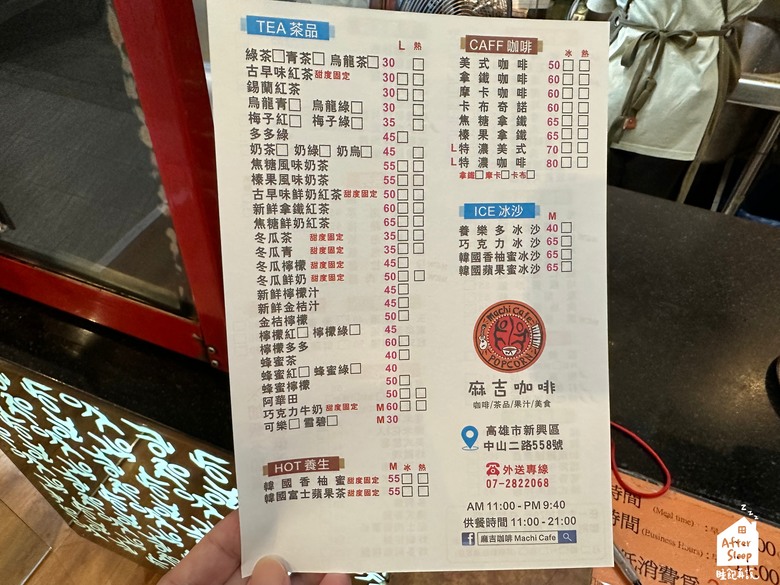 TEA 茶品 L 熱
綠茶□青茶□ 烏龍茶□ 30
古早味紅茶 甜度固定 30□□
錫蘭紅茶 30□□
烏龍青□ 烏龍綠□ 30□□
梅子紅□ 梅子綠□ 35□□
多多綠 45□
奶茶□ 奶綠□ 奶烏□ 45□□
焦糖風味奶茶 55□□
榛果風味奶茶 55□□
古早味鮮奶紅茶 甜度固定 50□□
新鮮拿鐵紅茶 60□□
焦糖鮮奶紅茶 65□□
冬瓜茶 甜度固定 35□□
冬瓜青 甜度固定 35□□
冬瓜檸檬 甜度固定 45□
冬瓜鮮奶 甜度固定 50□□
新鮮檸檬汁 45□
新鮮金桔汁 45□
金桔檸檬 50□
檸檬紅□ 檸檬綠□ 45□
檸檬多多 60□
蜂蜜茶 40□
蜂蜜紅□ 蜂蜜綠□ 40□
蜂蜜檸檬 50□
阿華田 50□□
巧克力牛奶 甜度固定 M60□□
可樂□ 雪碧□ M30
HOT 養生 M 冰 熱
韓國香柚蜜 甜度固定 55□□
韓國富士蘋果茶 甜度固定 55□□
CAFF 咖啡 冰 熱
美式咖啡 50□□
拿鐵咖啡 60□□
摩卡咖啡 60□□
卡布奇諾 60□□
焦糖拿鐵 65□□
榛果拿鐵 65□□
L特濃美式 70□□
L特濃咖啡 80□□
拿鐵□摩卡□卡布□
ICE 冰沙 M
養樂多冰沙 40□
巧克力冰沙 65□
韓國香柚蜜冰沙 65□
韓國蘋果蜜冰沙 65□
Machi Cafe
POPCORN
麻吉咖啡
咖啡/茶品/果汁/美食
高雄市新興區
中山二路558號
外送專線
07-2822068
AM 11:00 - PM 9:40
供餐時間 11:00 - 21:00
麻吉咖啡 Machi Cafe
時間 (Meal time) :
時間 (Business Hours) :
低消費
After
Sleep